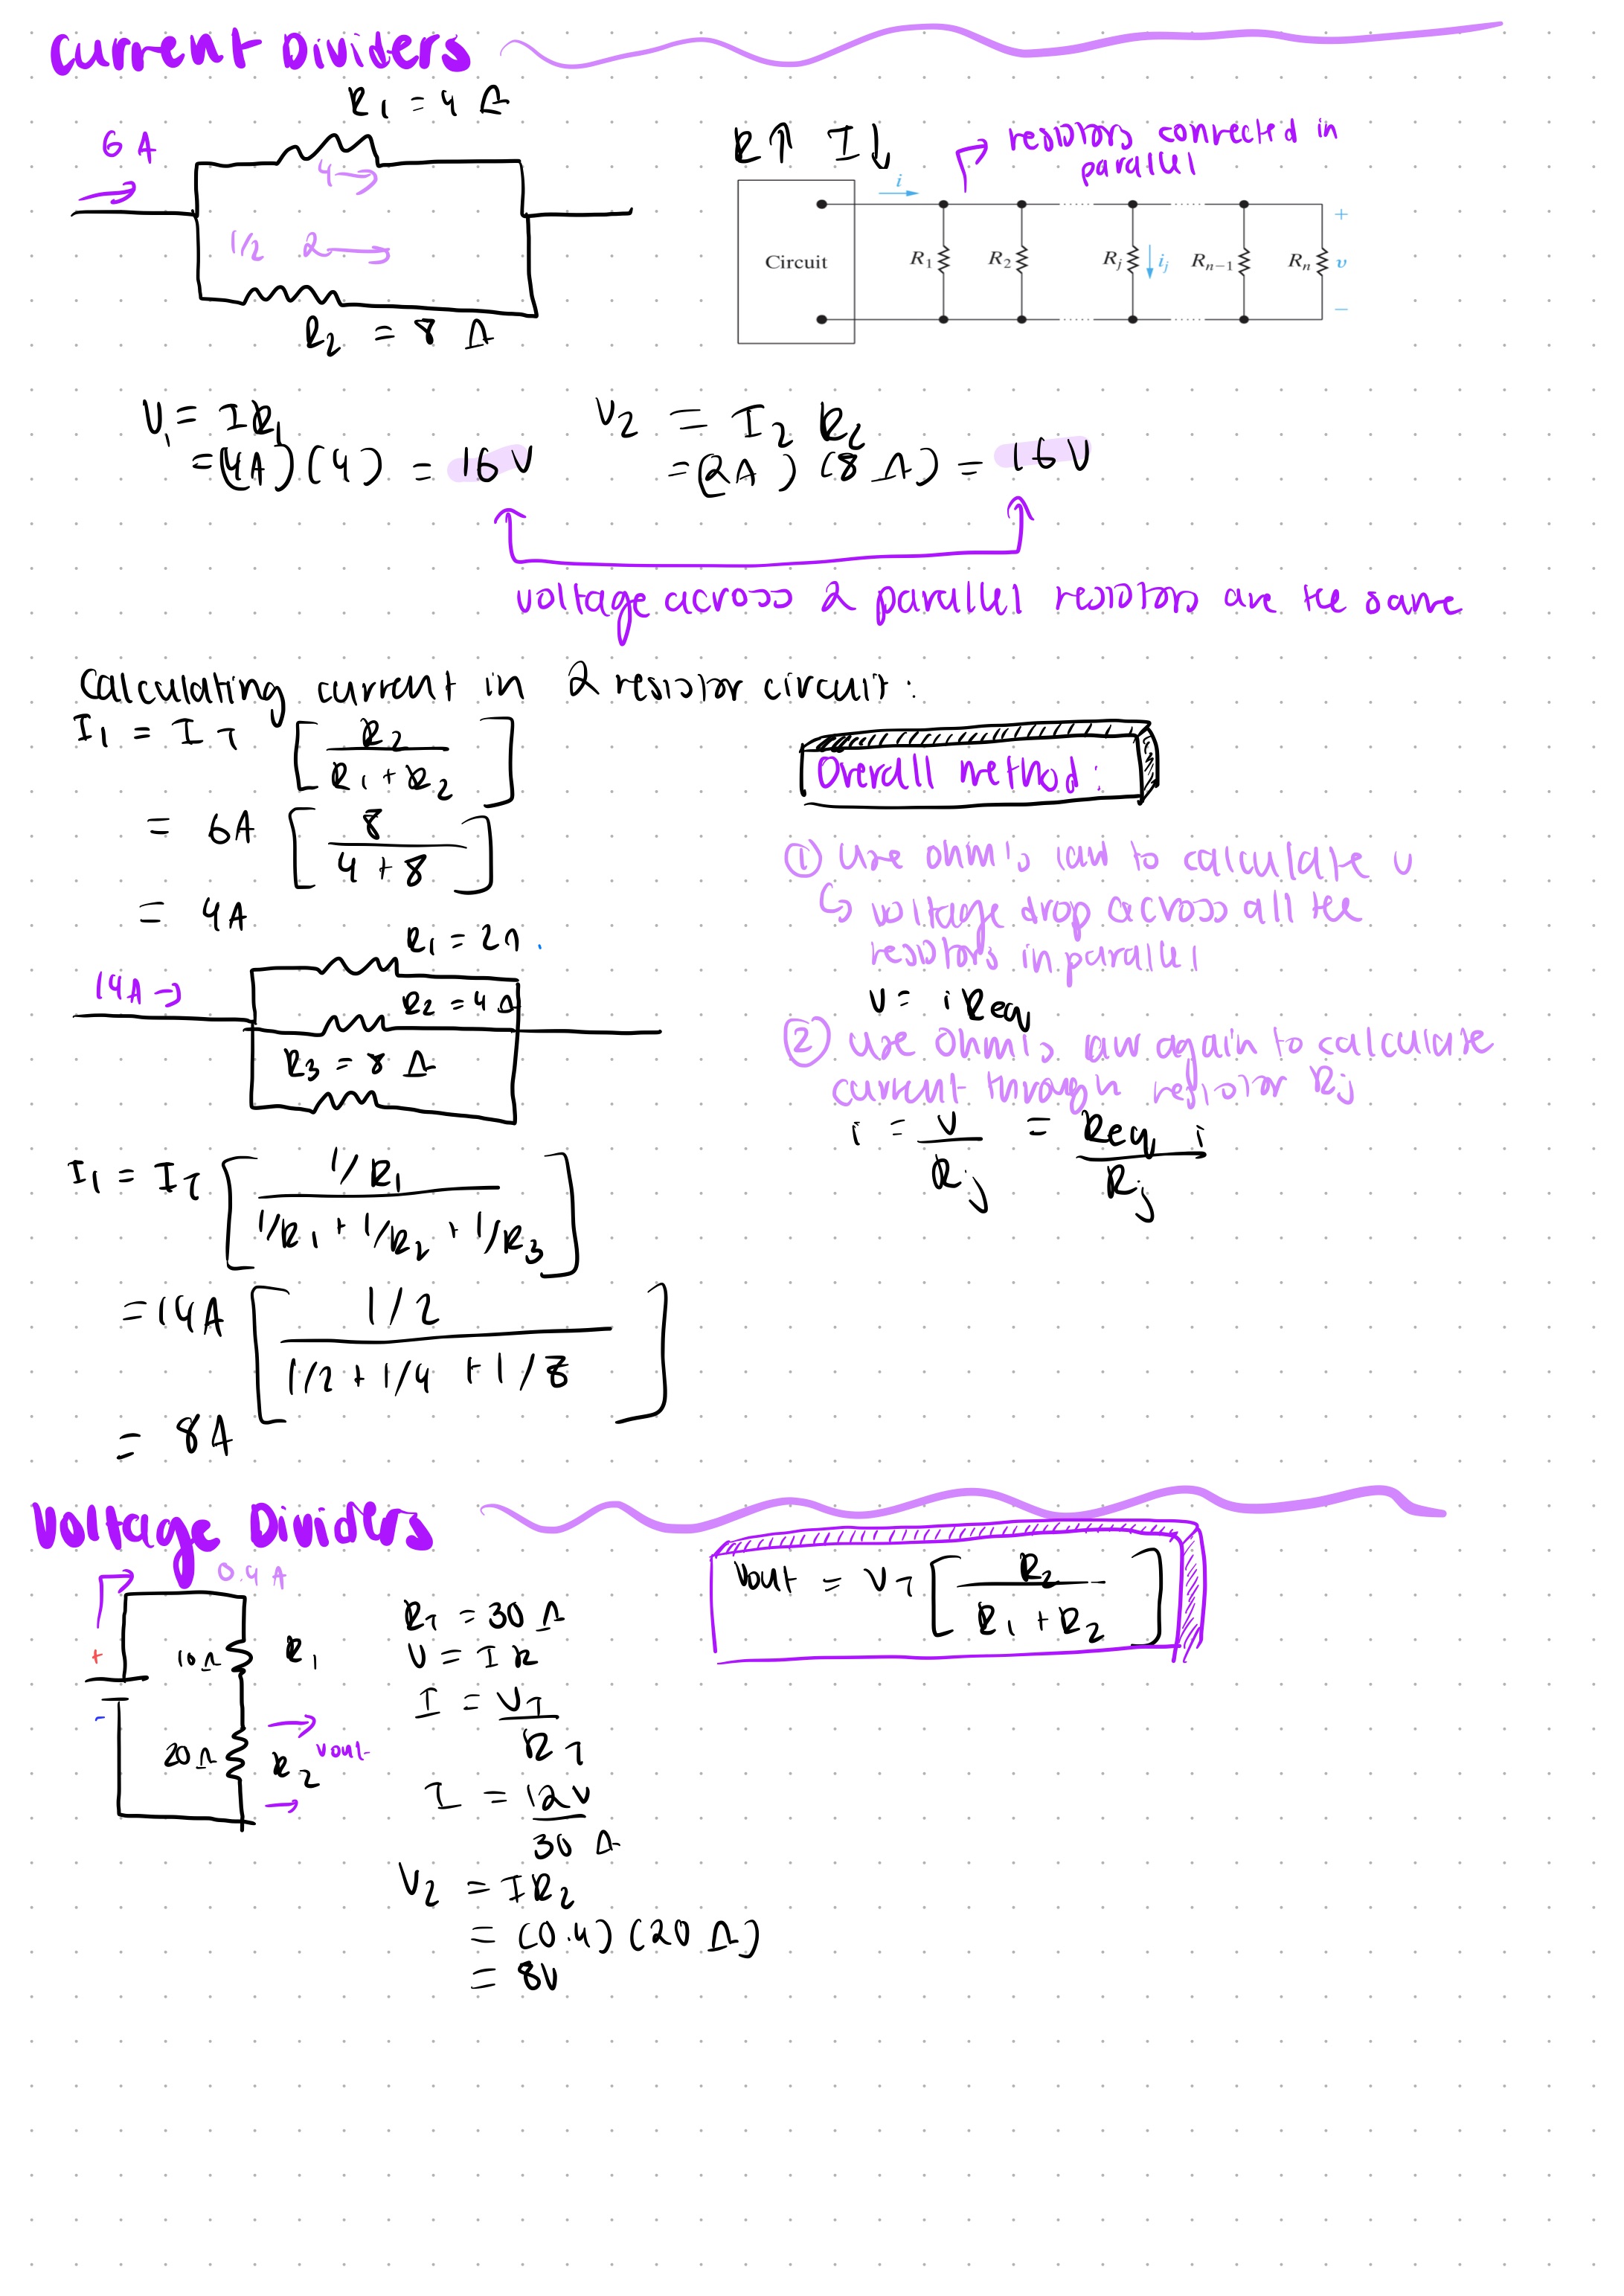 Current Dividers
R₁ = 4 Ω
6 A
4 →
1/2 2 →
R₂ = 8 Ω
R↑ I↓
resistors connected in
parallel
i
Circuit
R₁ R₂ Rⱼ iⱼ Rₙ₋₁ Rₙ + v −
V₁ = IR₁
= (4A)(4) = 16 V
V₂ = I₂ R₂
= (2A) (8 Ω) = 16V
voltage across 2 parallel resistors are the same
Calculating current in 2 resistor circuit:
I₁ = I_T [R₂ / (R₁ + R₂)]
= 6A [8 / (4 + 8)]
= 4A
R₁ = 2Ω
14A →
R₂ = 4 Ω
R₃ = 8 Ω
I₁ = I_T [(1/R₁) / (1/R₁ + 1/R₂ + 1/R₃)]
= 14A [(1/2) / (1/2 + 1/4 + 1/8)]
= 8A
Overall method:
① Use ohm's law to calculate v
↳ voltage drop across all the
resistors in parallel
v = i Req
② use Ohm's law again to calculate
current through resistor Rj
i = v / Rj = Req i / Rj
Voltage Dividers
0.4 A
+
10Ω R₁
-
20Ω R₂ Vout
R_T = 30 Ω
V = IR
I = V_T / R_T
I = 12V / 30 Ω
V₂ = IR₂
= (0.4) (20 Ω)
= 8V
Vout = V_T [R₂ / (R₁ + R₂)]